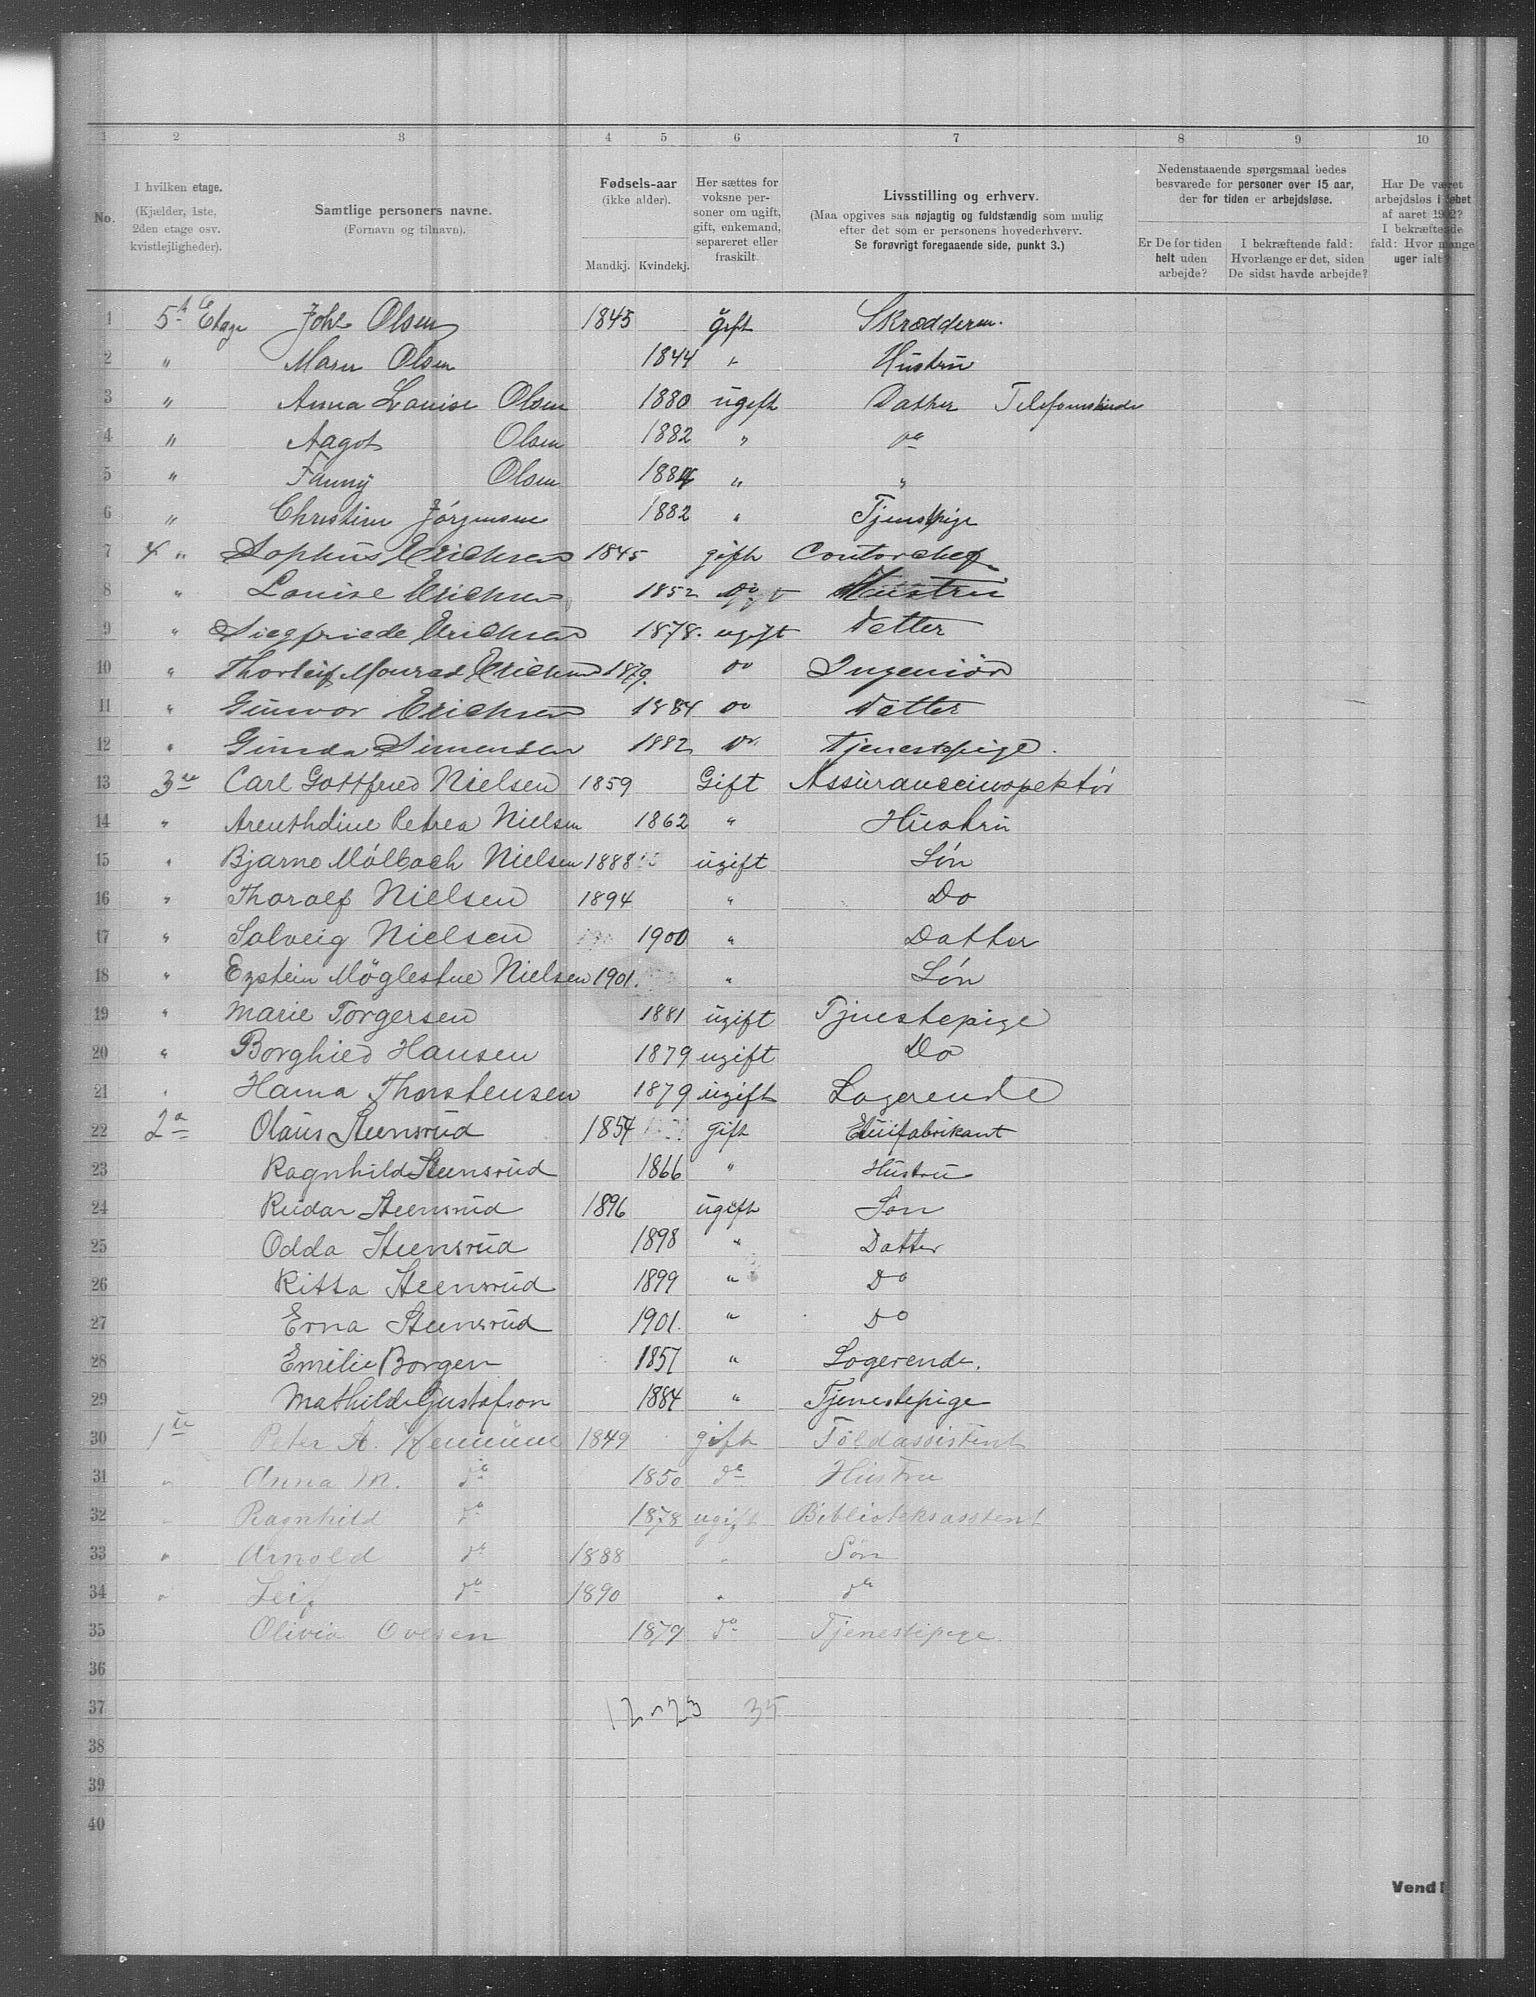 1 2 3 4 5 6 7 8 9 10
No.
I hvilken etage.
(Kjælder, 1ste,
2den etage osv.
kvistlejligheder).
Samtlige personers navne.
(Fornavn og tilnavn).
Fødsels-aar
(ikke alder).
Mandkj. Kvindekj.
Her sættes for
voksne per-
soner om ugift,
gift, enkemand,
separeret eller
fraskilt.
Livsstilling og erhverv.
(Maa opgives saa nøjagtig og fuldstændig som mulig
efter det som er personens hovederhverv.
Se forøvrigt foregaaende side, punkt 3.)
Nedenstaaende spørgsmaal bedes
besvarede for personer over 15 aar,
der for tiden er arbejdsløse.
Er De for tiden
helt uden
arbejde?
I bekræftende fald:
Hvorlænge er det, siden
De sidst havde arbejde?
Har De været
arbejdsløs i løbet
af aaret 1902?
I bekræftende
fald: Hvor mange
uger ialt?
1 5t Etage Johs Olsen 1845 gift Skrædderm.
2 " Maren Olsen 1844 " Hustru
3 " Anna Louise Olsen 1880 ugift Datter
4 " Aagot Olsen 1882 " do
5 " Fanny Olsen 1884 " "
6 " Christine Jörgensen 1882 " Tjenstpige
7 4 " Sophus Erichsen 1845 gift Contorchef
8 " Louise Erichsen 1852 do Hustru
9 " Siegfriede Erichsen 1878. ugift Datter
10 " Thorleif Monrad Erichsen 1879. do Ingeniör
11 " Gunvor Erichsen 1884 do Datter
12 " Gunda Simensen 1882 do Tjenestepige.
13 3de Carl Gottfred Nielsen 1859 Gift Assuranceinspektör
14 " Arenthdine Petrea Nielsen 1862 " Hustru
15 " Bjarne Mölbach Nielsen 1888 ugift Sön
16 " Tharalf Nielsen 1894 " Do
17 " Solveig Nielsen 1900 " Datter
18 " Eystein Möglestue Nielsen 1901. " Sön
19 " Marie Torgersen 1881 ugift Tjenestepige
20 " Borghild Hansen 1879 ugift Do
21 " Hanna Thorstensen 1879 ugift Logerende
22 2a Olaus Steensrud 1854 gift Etuifabrikant
23 Ragnhild Steensrud 1866 " Hustru
24 Reidar Steensrud 1896 ugift Sön
25 Odda Steensrud 1898 " Datter
26 Ritta Steensrud 1899 " Do
27 Erna Steensrud 1901. " Do
28 Emilie Borgen 1857 " Logerende.
29 Mathilde Gustafson 1884 " Tjenestepige
30 1ste Peter A. 1849 gift Toldassistent
31 " Anna M. do 1850 do Hustru
32 " Ragnhild do 1878 ugift Biblioteksasstent
33 " Arnold do 1888 " Sön
34 " Leif do 1890 " do
35 Olivia Ovesen 1879 do Tjenestepige.
36
37 12-23 35
38
39
40
Vend!